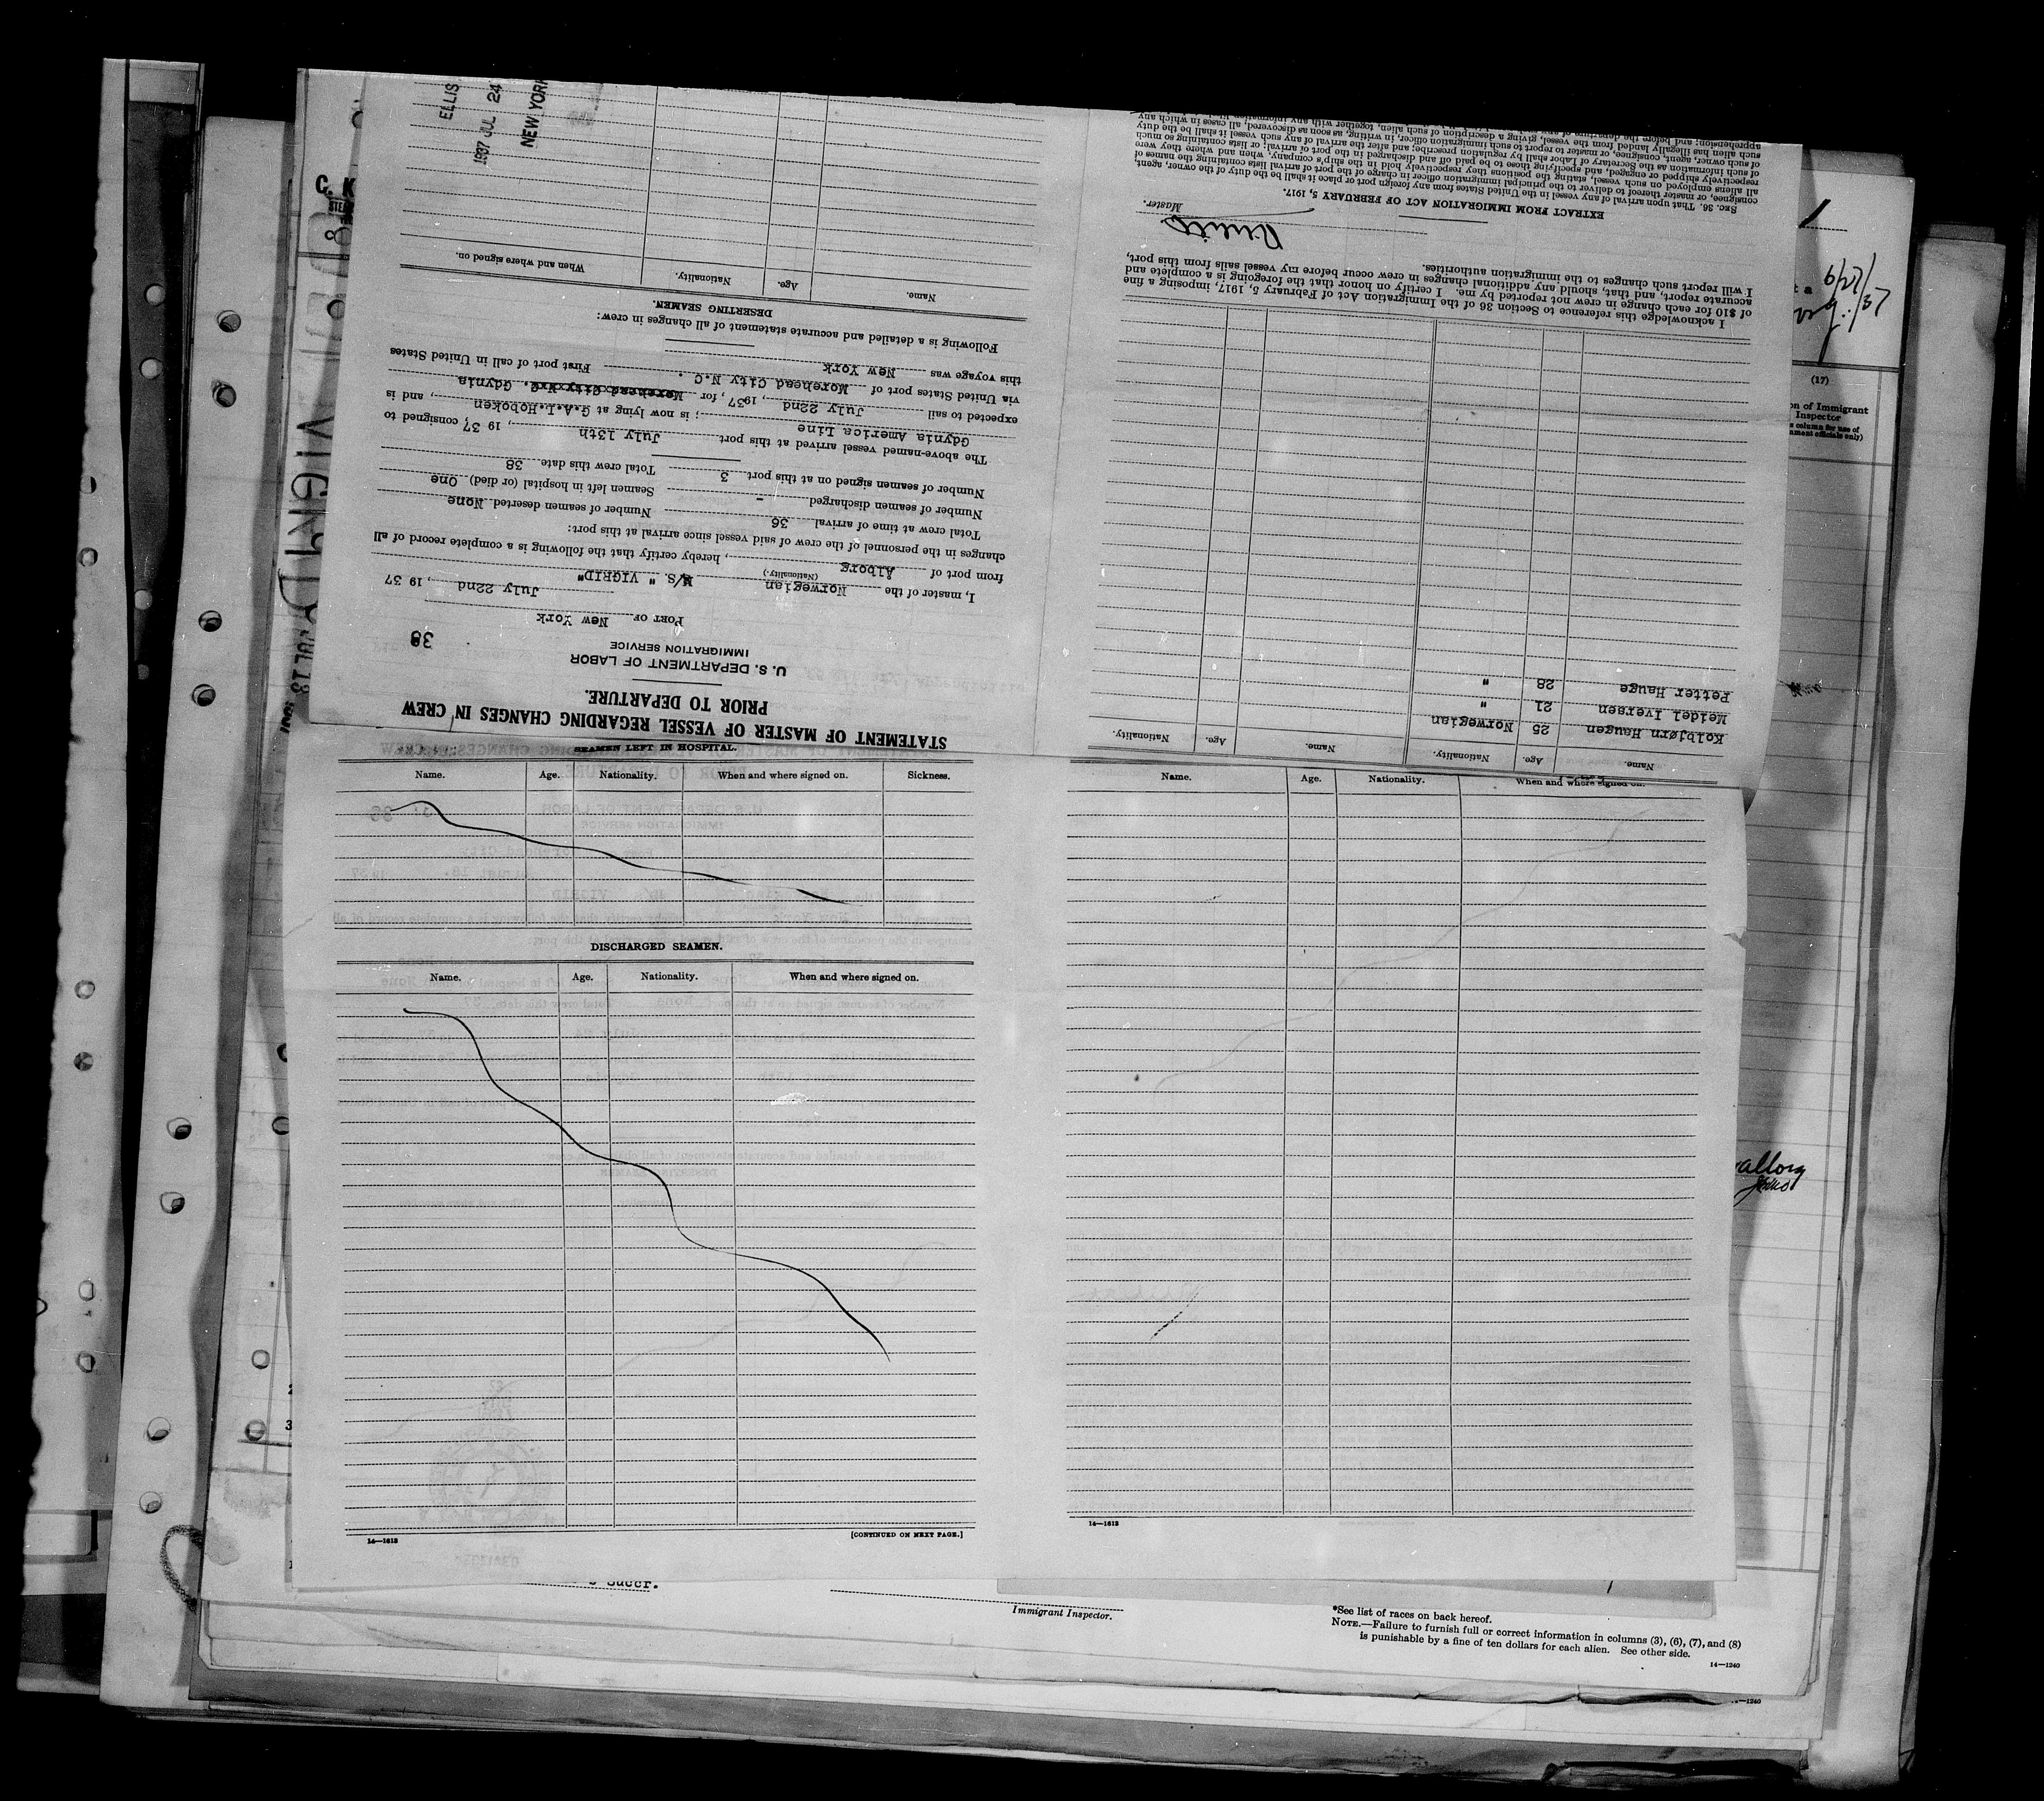 STATEMENT OF MASTER OF VESSEL REGARDING CHANGES IN CREW
PRIOR TO DEPARTURE.
U. S. DEPARTMENT OF LABOR
IMMIGRATION SERVICE
38
PORT OF New York
July 22nd, 19 37
I, master of the Norwegian M/S. " VIGRID"
(Nationality.)
from port of Ålborg, hereby certify that the following is a complete record of all
changes in the personnel of the crew of said vessel since arrival at this port:
Total crew at time of arrival 36 Number of seamen deserted None
Number of seamen discharged - Seamen left in hospital (or died) One
Number of seamen signed on at this port 3 Total crew this date 38
The above-named vessel arrived at this port July 13th, 19 37, consigned to
Gdynia America Line; is now lying at G.A.L. Hoboken, and is
expected to sail July 22nd, 1937, for Morehead City N.C. Gdynia
via United States port of Morehead City N.C. First port of call in United States
this voyage was New York
Following is a detailed and accurate statement of all changes in crew:
DESERTING SEAMEN.
Name. Age. Nationality. When and where signed on.
ELLIS
1937 JUL 24
NEW YORK
Name. Age. Nationality. Name. Age. Nationality.
Kolbjørn Haugen 25 Norwegian
Meidel Iversen 21 "
Petter Hauge 28 "
I acknowledge this reference to Section 36 of the Immigration Act of February 5, 1917, imposing a fine
of $10 for each change in crew not reported by me. I certify on honor that the foregoing is a complete and
accurate report, and that, should any additional changes in crew occur before my vessel sails from this port,
I will report such changes to the immigration authorities.
Master.
EXTRACT FROM IMMIGRATION ACT OF FEBRUARY 5, 1917.
SEC. 36. That upon arrival of any vessel in the United States from any foreign port or place it shall be the duty of the owner, agent,
consignee, or master thereof to deliver to the principal immigration officer in charge of the port of arrival lists containing the names of
all aliens employed on such vessel, stating the positions they respectively hold in the ship's company, when and where they were
respectively shipped or engaged, and specifying those to be paid off and discharged in the port of arrival; or lists containing so much
of such information as the Secretary of Labor shall by regulation prescribe; and after the arrival of any such vessel it shall be the duty
of such owner, agent, consignee, or master to report to such immigration officer, in writing, as soon as discovered, all cases in which any
such alien has illegally landed from the vessel, giving a description of such alien, together with any information
SEAMEN LEFT IN HOSPITAL.
Name. Age. Nationality. When and where signed on. Sickness.
DISCHARGED SEAMEN.
Name. Age. Nationality. When and where signed on.
14—1613 [CONTINUED ON NEXT PAGE.]
Name. Age. Nationality. When and where signed on.
14—1613
VIGRID JUL 13
(17)
on of Immigrant
Inspector
column for use of
officials only)
Succr.
Immigrant Inspector.
*See list of races on back hereof.
NOTE.—Failure to furnish full or correct information in columns (3), (6), (7), and (8)
is punishable by a fine of ten dollars for each alien. See other side.
14—1240
—1240